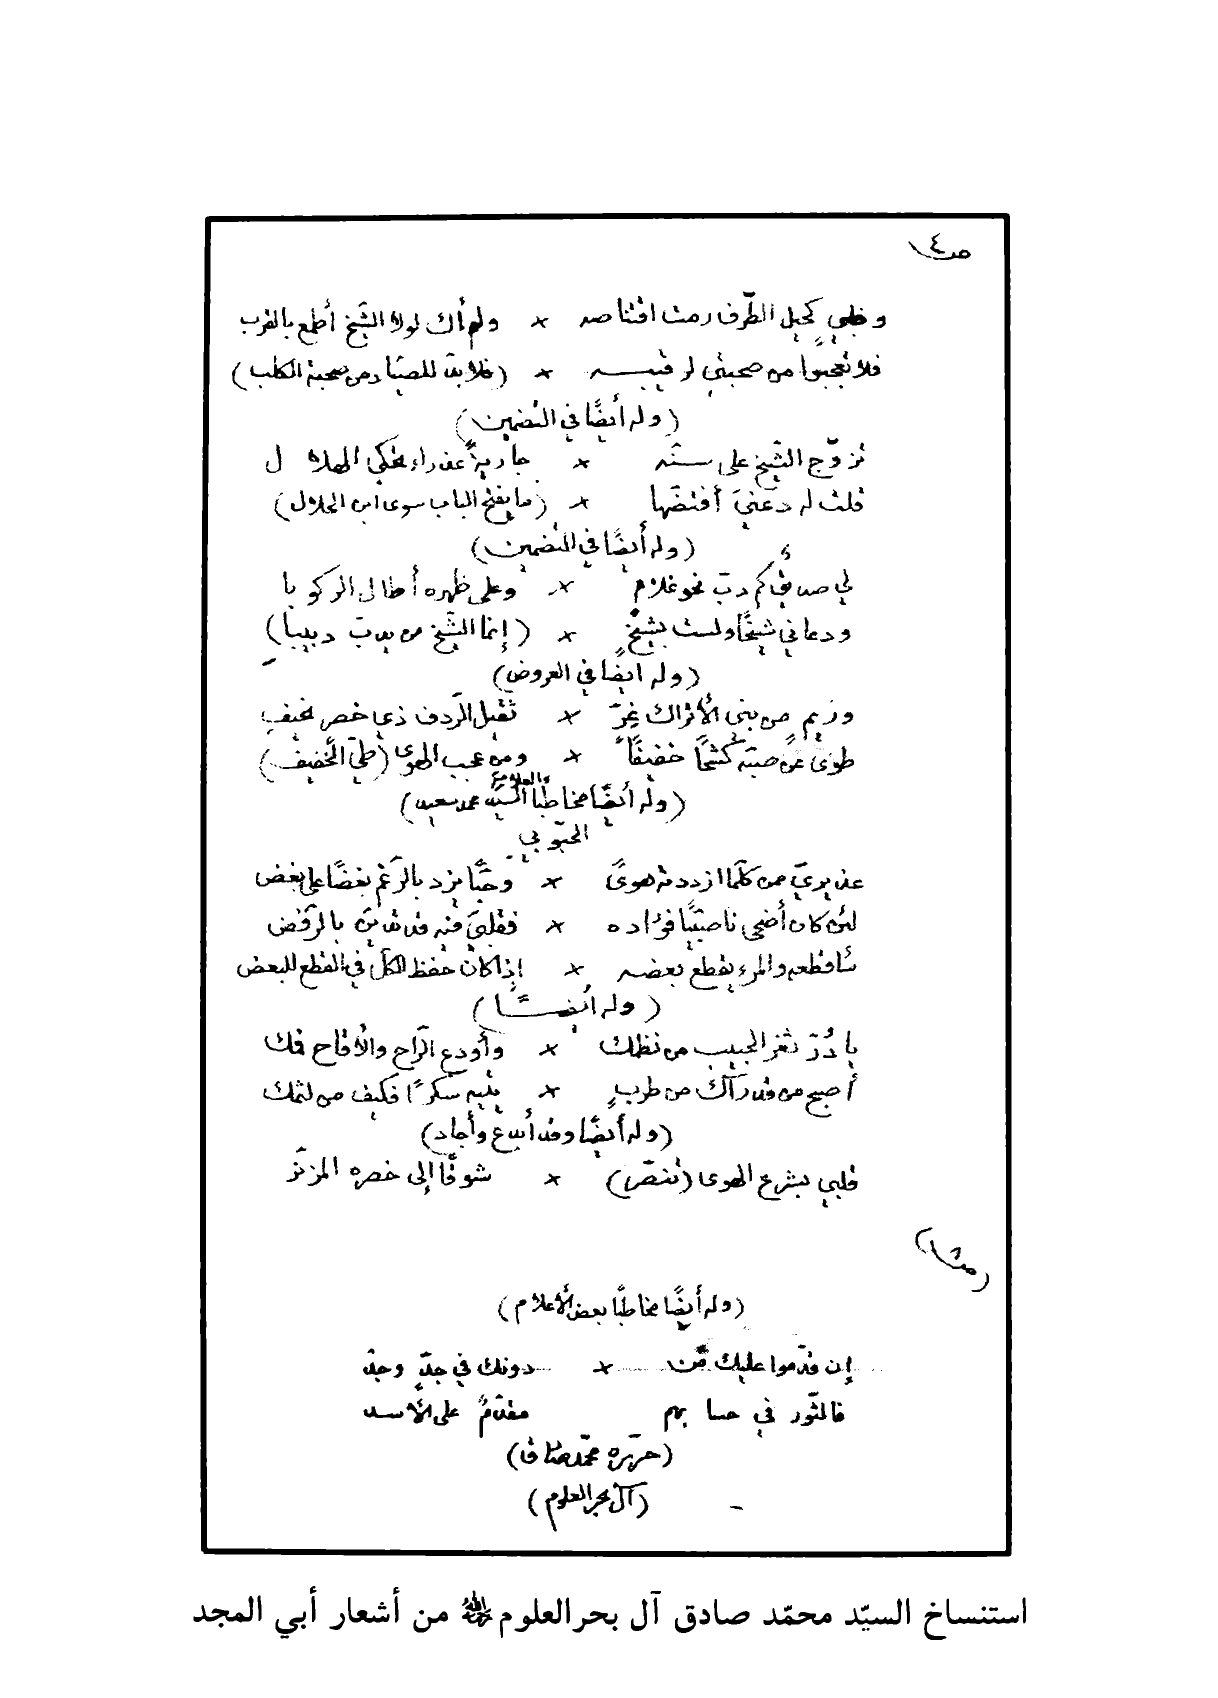 ص٤
وظبيٍ كحيل الطّرف رمت اقتناصه × ولم أك لولا الشّيخ أطمع بالقرب
فلا تعجبوا من صحبتي لرقيبه × (فلا بدّ للصيّاد من صحبة الكلب)
(وله أيضًا في التضمين)
تزوّج الشّيخ على سنّه × جاريةً عذراء تحكي الهلال
قلت له دعنيَ أفتضّها × (ما يفتح الباب سوى ابن الحلال)
(وله أيضًا في التضمين)
لي صديق كم دبّ نحو غلام × وعلى ظهره أطال الركوبا
ودعاني شيخًا ولست بشيخٍ × (إنما الشّيخ من يدبّ دبيبا)
(وله ايضًا في العروض)
وريمٍ من بني الأتراك غرّ × ثقيل الرّدف ذي خصر نحيفِ
طوى عن صبّه كشحًا خفيفًا × ومن عجب الهوى (طيّ الخفيف)
(وله أيضًا مخاطبًا السيّد محمد سعيد
العلامة
الحبّوبي
عذيريَ من كلّما ازددت هوىً × وحبًّا يزد بالرّغم بغضًا على بغض
لئن كان أضحى ناصبيًّا فؤاده × فقلبيَ فيه قد تديّن بالرّفض
سأقطعه والمرء يقطع بعضه × إذا كان حفظ الكلّ في القطع للبعض
(وله أيضًا)
يا دُرّ ثغر الحبيب من نظمك × وأودع الرّاح والأقاح فمك
أصبح من قد رآك من طربٍ × يتيه سكرًا فكيف من لثمك
(وله أيضًا وقد أبدع وأجاد)
قلبي بشرع الهوى (تنصّر) × شوقًا إلى خصره المزنّر
(وله أيضًا مخاطبًا بعض الأعلام)
إن قدّموا عليك مَن × دونك في جدٍّ وجدّ
فالثّور في حسابهم مقدّمٌ على الأسد
(حرّره محمّد صادق)
(آل بحر العلوم)
استنساخ السيّد محمّد صادق آل بحرالعلوم من أشعار أبي المجد